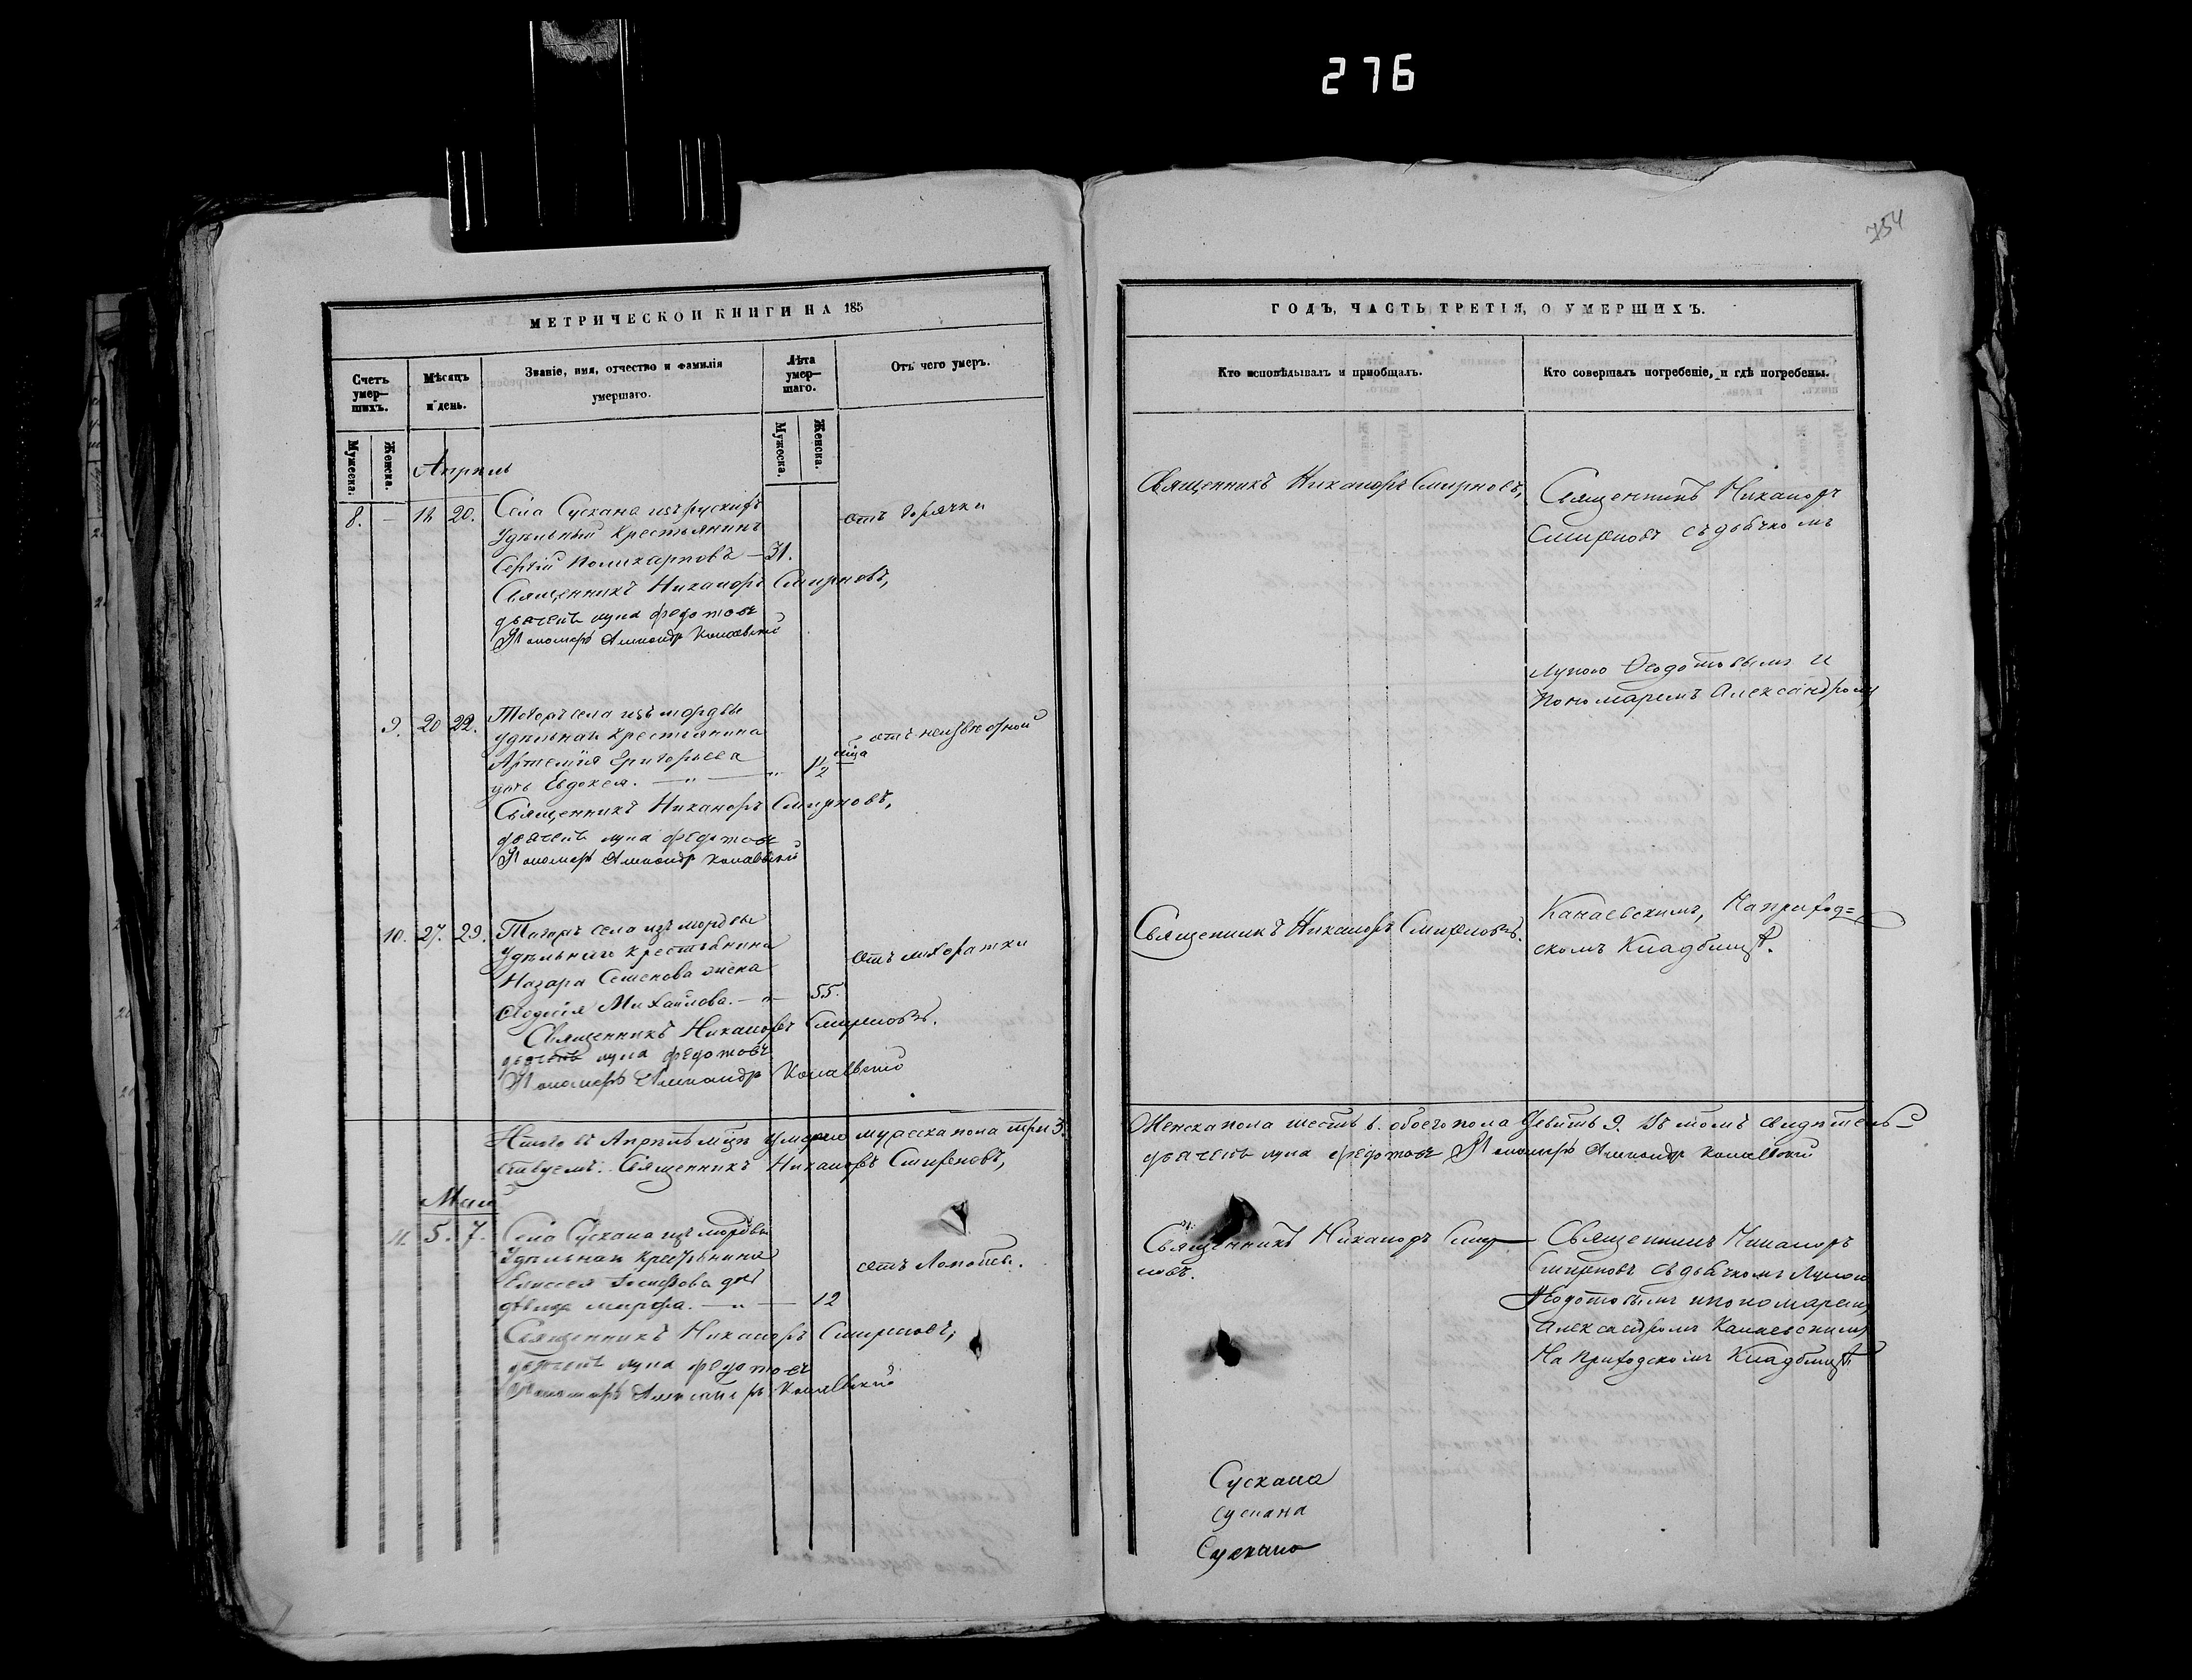 276
754
МЕТРИЧЕСКОЙ КНИГИ НА 185
Счетъ умер-
шихъ.
Мѣсяцъ
и день.
Званіе, имя, отчество и фамилія
умершаго.
Лѣта
умер-
шаго.
Отъ чего умеръ.
Мужеска.
Женска.
Мужеска.
Женска.
Апрель
8. — 18 20. Села Сускана изъ рускихъ
удѣльный крестьянинъ
Сергій Поликарповъ — 31.
отъ горячки
Священникъ Никаноръ Смирновъ,
дьячекъ лука федотовъ
Пономарь Александр Канаевский
9. 20 22. Тогожъ села изъ мордвы
удѣльнаго крестьянина
Артемія Григорьева
дочь Евдокея. — " — " 1/2 м҃ца
отъ неизвѣстной
Священникъ Никаноръ Смирновъ,
дьячекъ лука федотовъ
Пономарь Александр Канаевский
10. 27. 29. Тогожъ села изъ мордвы
удѣльнаго крестьянина
Назара Семенова жена
Михайлова. — " — 55.
отъ лихоратки
Священникъ Никаноръ Смирновъ.
дьячекъ лука федотовъ
Пономарь Александр Канаевский
Итого въ Апрелѣ м҃цѣ умерло мужеска пола три 3.
ствуемъ: Священникъ Никаноръ Смирновъ,
Май
11. 5. 7. Села Сускана изъ мордвы
Удѣльнаго крестьянина
Елисея дочь
дѣвица марфа. — " — 12
отъ ломоты.
Священникъ Никаноръ Смирновъ,
дьячекъ лука федотовъ
Пономарь Александръ Канаевский
ГОДЪ, ЧАСТЬ ТРЕТІЯ, О УМЕРШИХЪ.
Кто исповѣдывалъ и пріобщалъ.
Кто совершалъ погребеніе, и гдѣ погребены.
Священникъ Никаноръ Смирновъ,
Священникъ Никаноръ
Смирновъ съ дьячкомъ
Лукою Ѳеодотовымъ и
Пономаремъ Александромъ
Священникъ Никаноръ Смирновъ.
Канаевскимъ, На приход=
скомъ Кладбищѣ.
Женска пола шесть 6. обоего пола девять 9. Въ томъ свидѣтель-
дьячекъ лука федотовъ Пономарь Александр Канаевский
Священникъ Никаноръ Смир-
новъ.
Священникъ Никаноръ
Смирновъ съ дьячкомъ Лукою
Ѳеодотовымъ и пономаремъ
Александромъ Канаевскимъ
На приходскомъ Кладбищѣ
Сускана
Сускана
Сускана